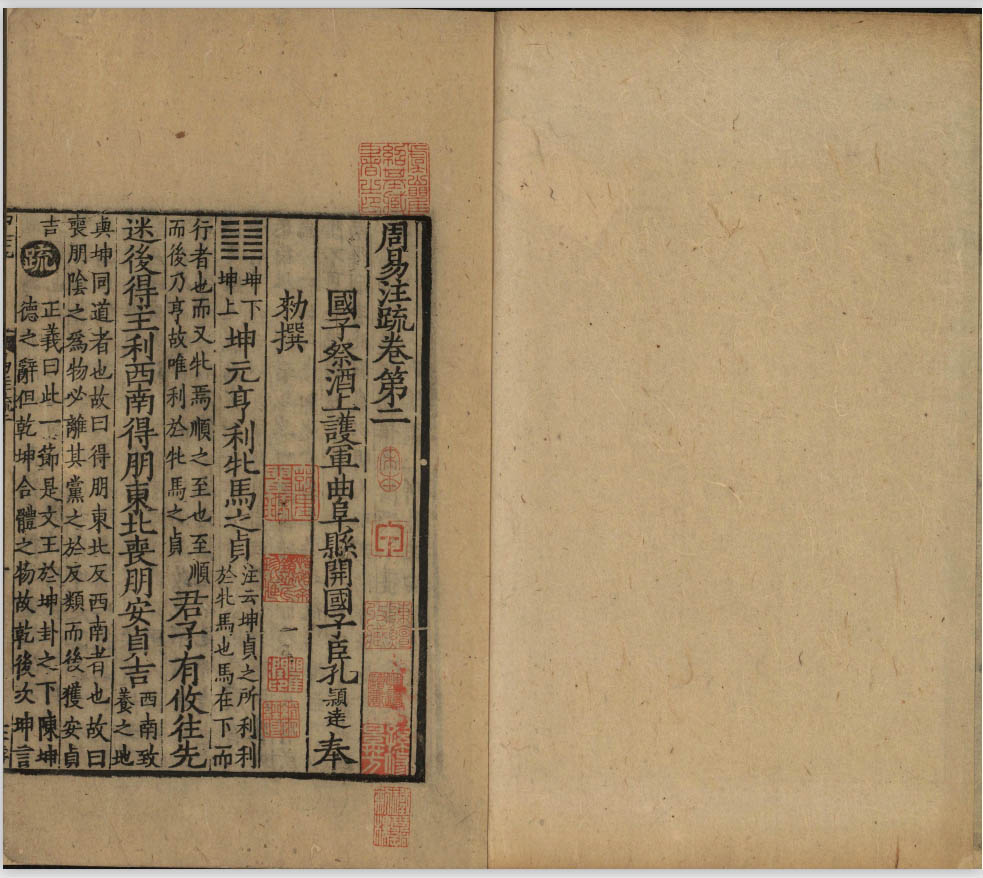 周易注疏卷第二
國子祭酒上護軍曲阜縣開國子臣孔穎達奉
勑撰
䷁坤下坤上坤元亨利牝馬之貞注云坤貞之所利利於牝馬也馬在下而
行者也而又牝焉順之至也至順而後乃亨故唯利於牝馬之貞君子有攸往先
迷後得主利西南得朋東北喪朋安貞吉西南致養之地
與坤同道者也故曰得朋東北反西南者也故曰
喪朋陰之爲物必離其黨之於反類而後獲安貞
吉疏正義曰此一節是文王於坤卦之下陳坤
德之辭但乾坤合體之物故乾後次坤言
宋本